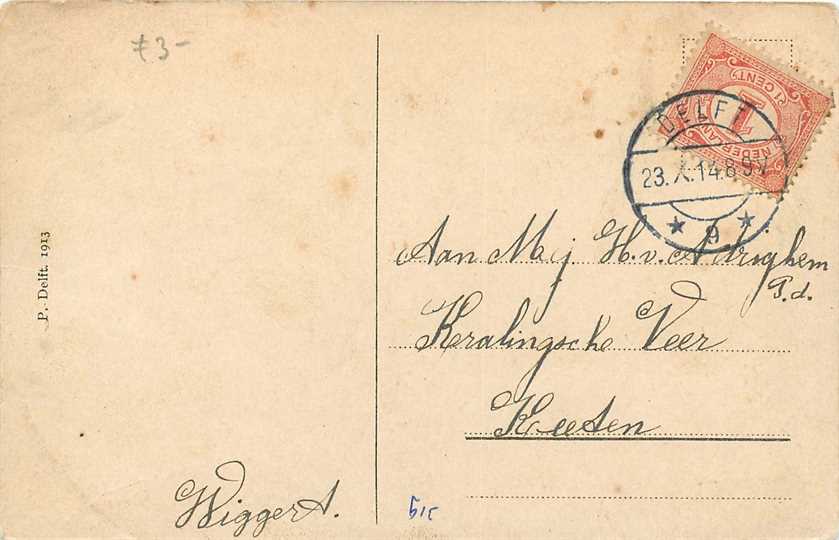 f 3-
P. Delft. 1913
1 CENT
1
NEDERLAND
DELFT
23.X.14.8 9V
* 9 *
Aan Mej. H. v. Adrighem
P.d.
Kralingsche Veer
Keeten
Wigger A.